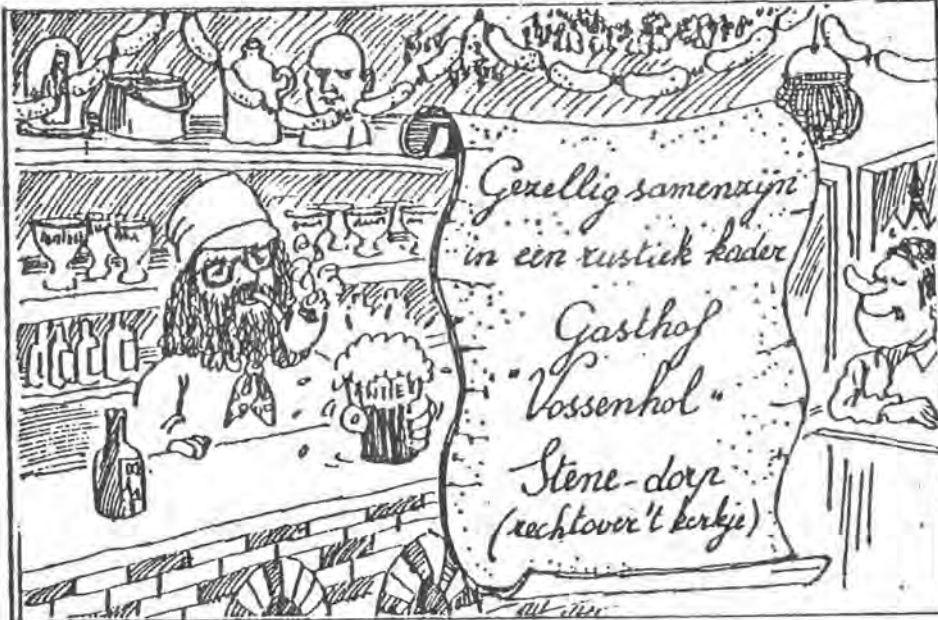 Gezellig samenzijn
in een rustiek kader
Gasthof
"Vossenhol"
Stene-dorp
(rechtover 't kerkje)